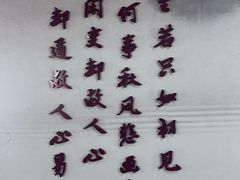 生若只如初见
何事秋风悲画
闲变却故人心
却道故人心易